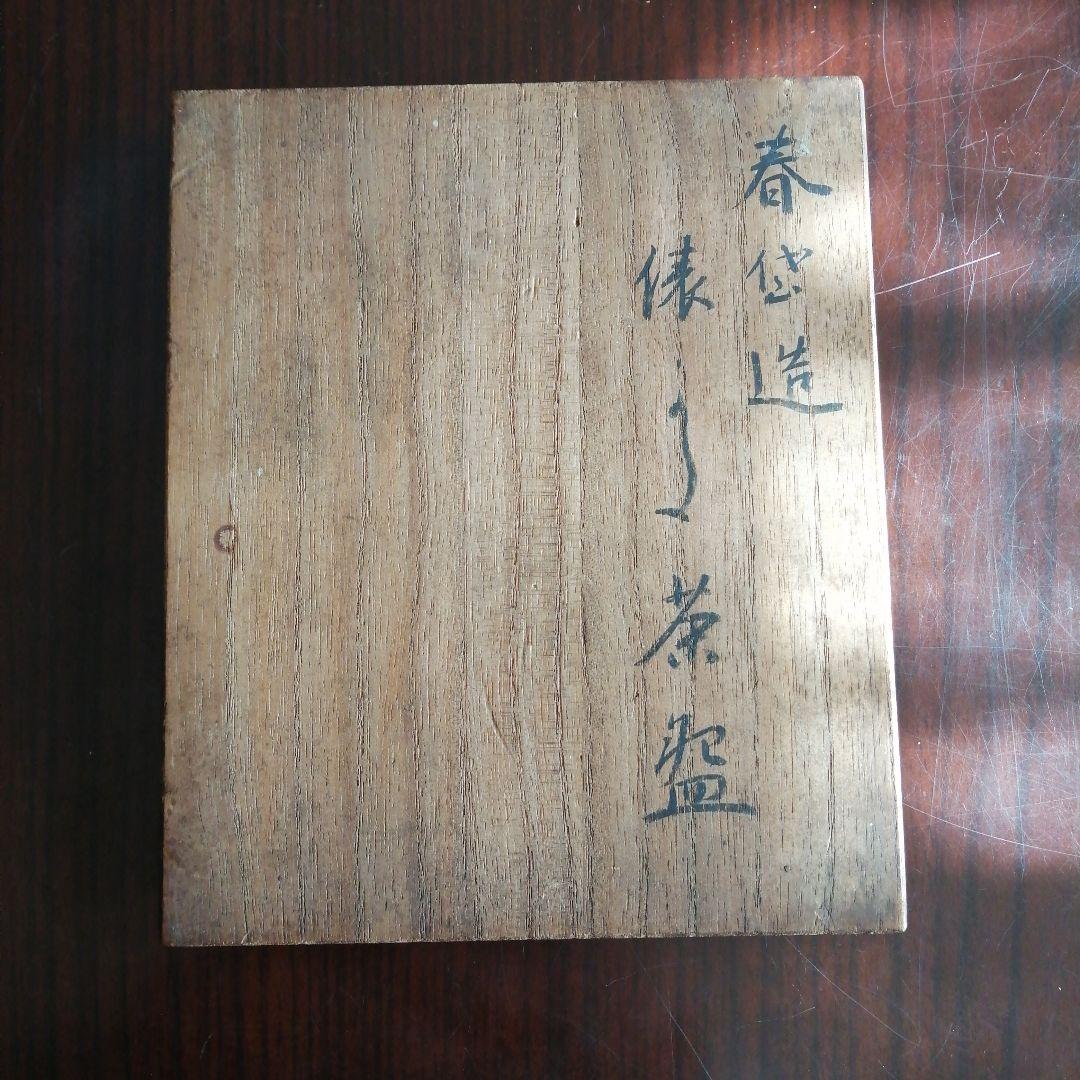 春岱造
俵之茶盌